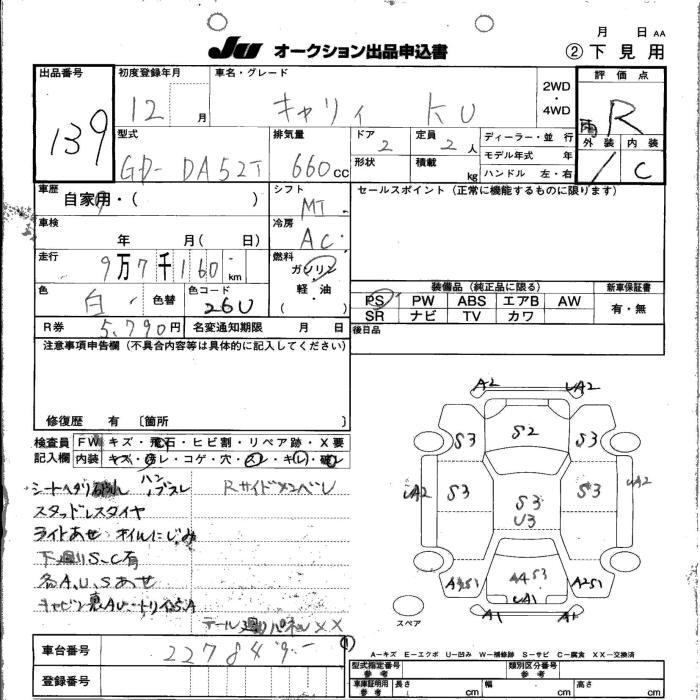 月 日 AA
JU オークション出品申込書 ②下見用
出品番号 初度登録年月 車名・グレード 2WD・4WD 評価点
139 12 月 キャリィ KU 雨 R
型式 排気量 ドア 定員 ディーラー・並 行 外装 内装
GD- DA52T 660cc 2 2人 モデル年式 年 / C
形状 積載 kg ハンドル 左・右
車歴 シフト セールスポイント(正常に機能するものに限ります)
自家用・( ) MT
車検 冷房
年 月( 日) AC
走行 燃料
9万7千160 km ガソリン
色 色替 色コード 軽・油
白 26U ( )
装備品(純正品に限る) 新車保証書
PS PW ABS エアB AW 有・無
SR ナビ TV カワ
R券 5,790円 名変通知期限 月 日 後日品
注意事項申告欄(不具合内容等は具体的に記入してください)
修復歴 有 [箇所 ]
検査員 FW キズ・飛石・ヒビ割・リペア跡・X要
記入欄 内装 キズ・汚レ・コゲ・穴・スレ・キレ・破レ
シートヘタリ ハンドルスレ Rサイドメンバし
スタッドレスタイヤ
ライトあせ オイルにじみ
下廻りS、C有
各A、U、Sあせ
キャビン裏AU
テール廻りパネルXX
A2 UA2
S3 S2 S3
UA2 S3 S3 U3 S3 UA2
A2S1 A4S3 A2S1
UA1
A1 A1
スペア
A-キズ E-エクボ U-凹み W-補修跡 S-サビ C-腐食 XX-交換済
車台番号 227849
登録番号
型式指定番号 参考 類別区分番号 参考
車庫証明用 参考 長さ cm 幅 cm 高さ cm